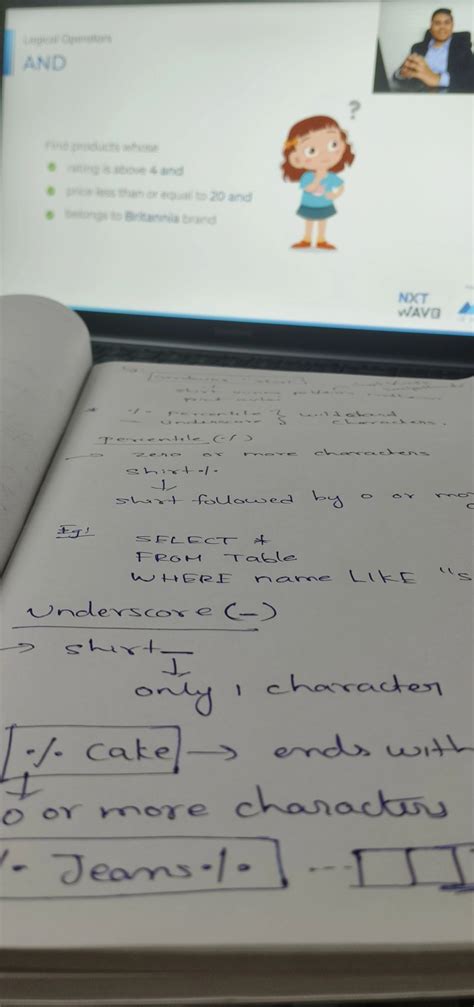 Logical Operators
AND
?
Find products whose
rating is above 4 and
price less than or equal to 20 and
belongs to Britannia brand
NXT
WAVE
* % Percentile } wildcard
— underscore } characters.
Percentile (%)
→ zero or more characters
shirt%
↓
shirt followed by 0 or mo
Eg:
SELECT *
FROM Table
WHERE name LIKE "s
Underscore (_)
→ shirt_
↓
only 1 character
% cake → ends with
↓
0 or more characters
% Jeans%